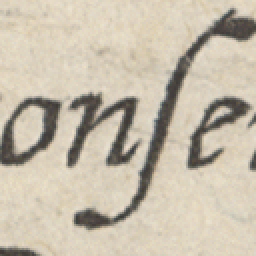 onſe